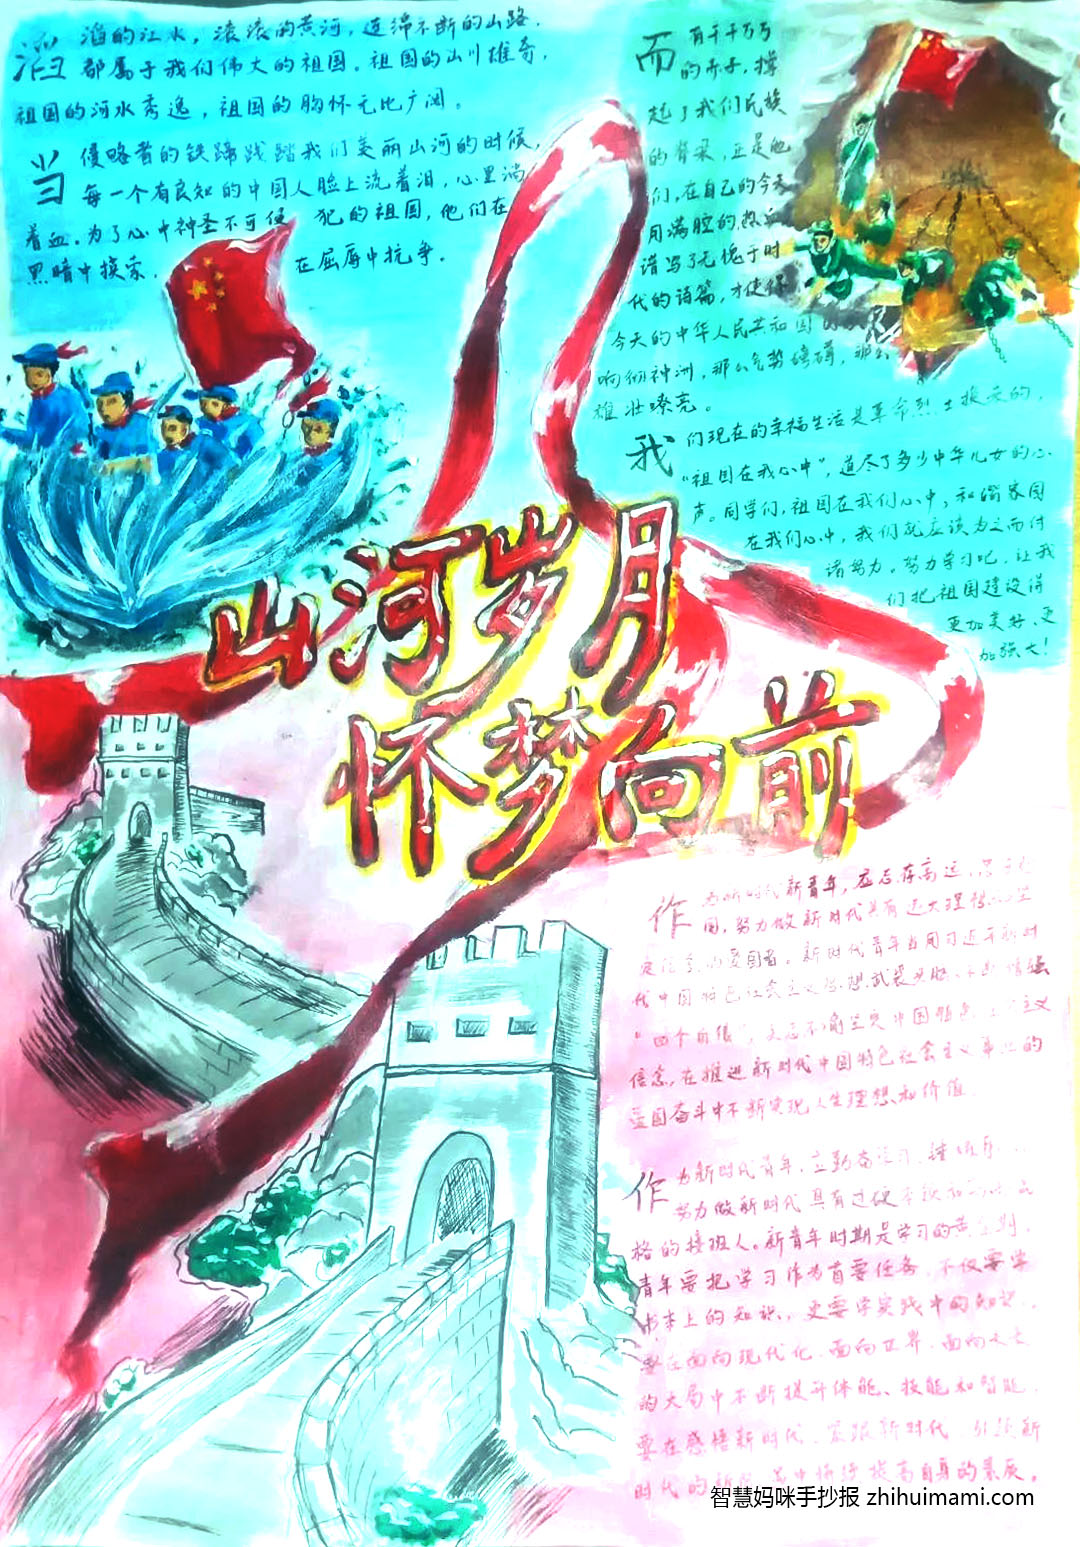 滔滔的江水，滚滚的黄河，连绵不断的山路，
都属于我们伟大的祖国。祖国的山川雄奇，
祖国的河水秀逸，祖国的胸怀无比广阔。
当侵略者的铁蹄践踏我们美丽山河的时候，
每一个有良知的中国人脸上流着泪，心里淌
着血。为了心中神圣不可侵犯的祖国，他们在
黑暗中摸索，在屈辱中抗争。
而有千千万万
的赤子，撑
起了我们民族
的脊梁，正是他
们，在自己的今天
用满腔的热血
谱写了无愧于时
代的诗篇，才使得
今天的中华人民共和国
响彻神洲，那么气势磅礴，那么
雄壮嘹亮。
我们现在的幸福生活是革命烈士换来的，
“祖国在我心中”，道尽了多少中华儿女的心
声。同学们，祖国在我们心中，和谐家园
在我们心中，我们就应该为之而付
诸努力。努力学习吧，让我
们把祖国建设得
更加美好、更
加强大！
山河岁月
怀梦向前
作为新时代新青年，应志存高远，
国，努力做新时代具有远大理想
爱国者。新时代青年当用习近平新时
代中国特色社会主义思想武装头脑，不断增强
“四个自信”，中国特色主义
信念，在推进新时代中国特色社会主义事业的
奋斗中不断实现人生理想和价值。
作为新时代青年，立勤奋学习
努力做新时代具有过硬
格的接班人。新青年时期是学习的黄金期，
青年要把学习作为首要任务，不仅要学
书本上的知识，更要学实践中的知识，
要在面向现代化、面向世界、面向未来
的大局中不断提升体能、技能和智能，
要在感悟新时代、紧跟新时代、引领新
时代的提高自身的素质。
智慧妈咪手抄报 zhihuimami.com